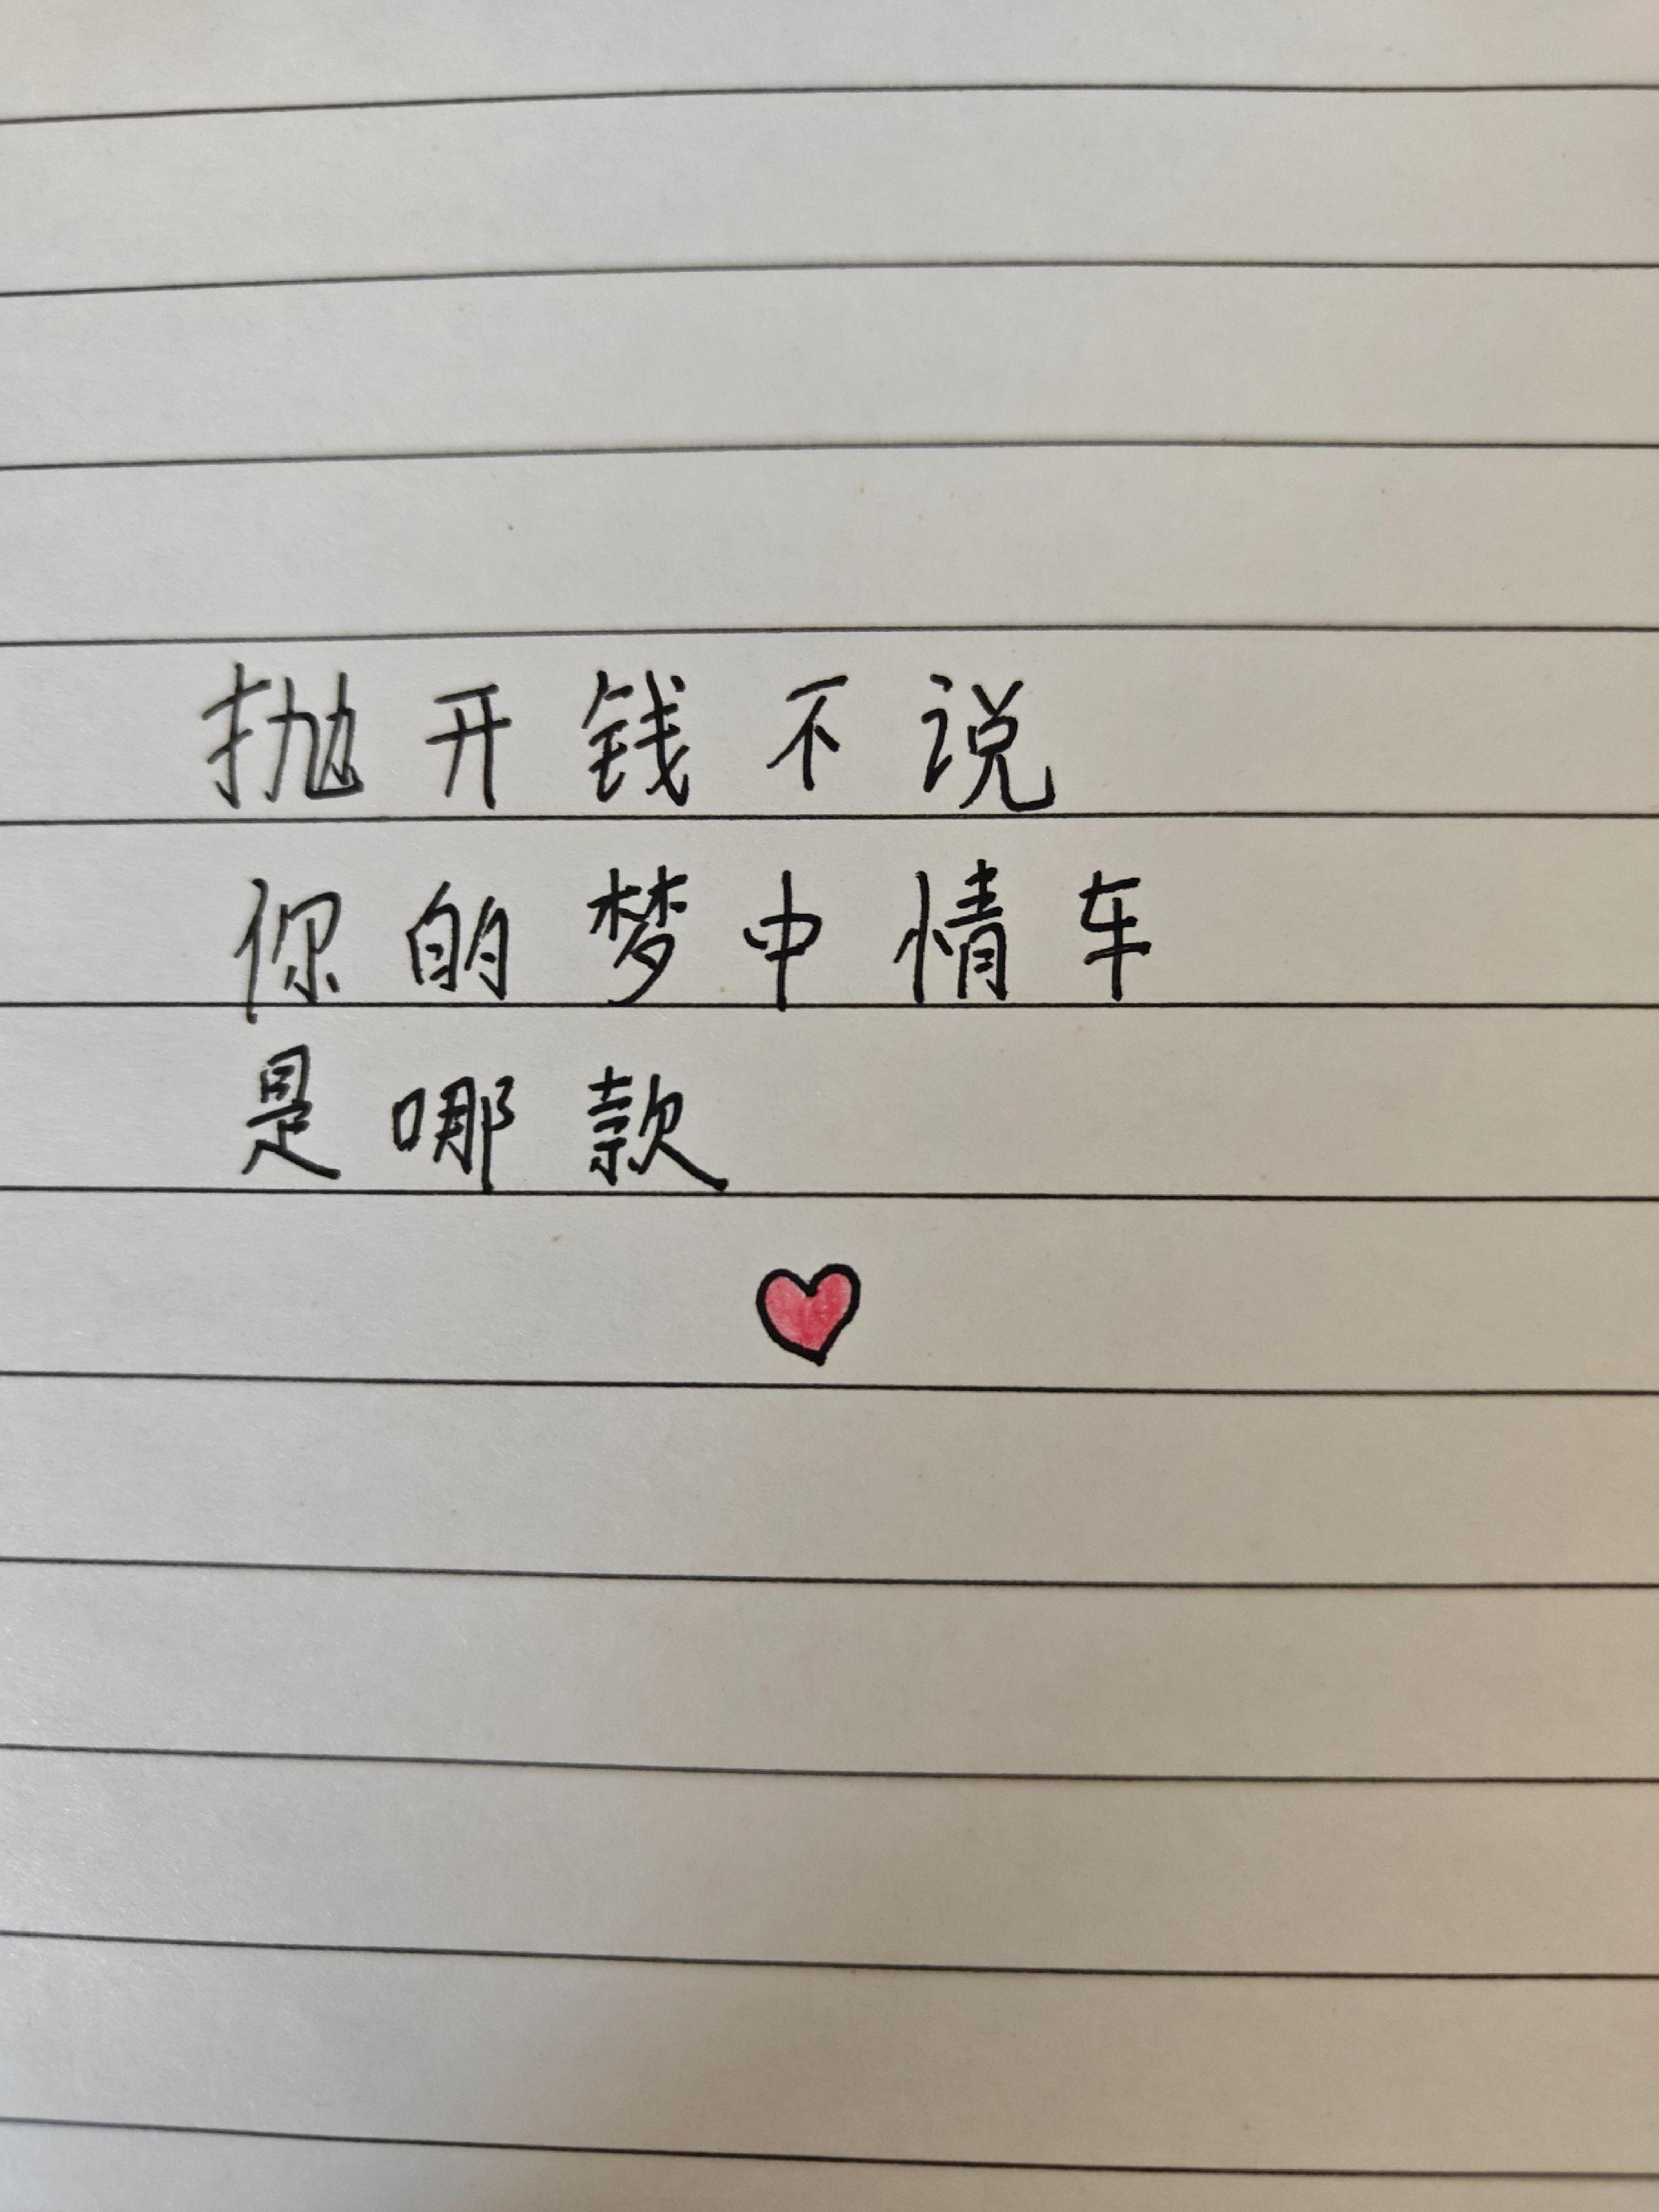 抛开钱不说
你的梦中情车
是哪款